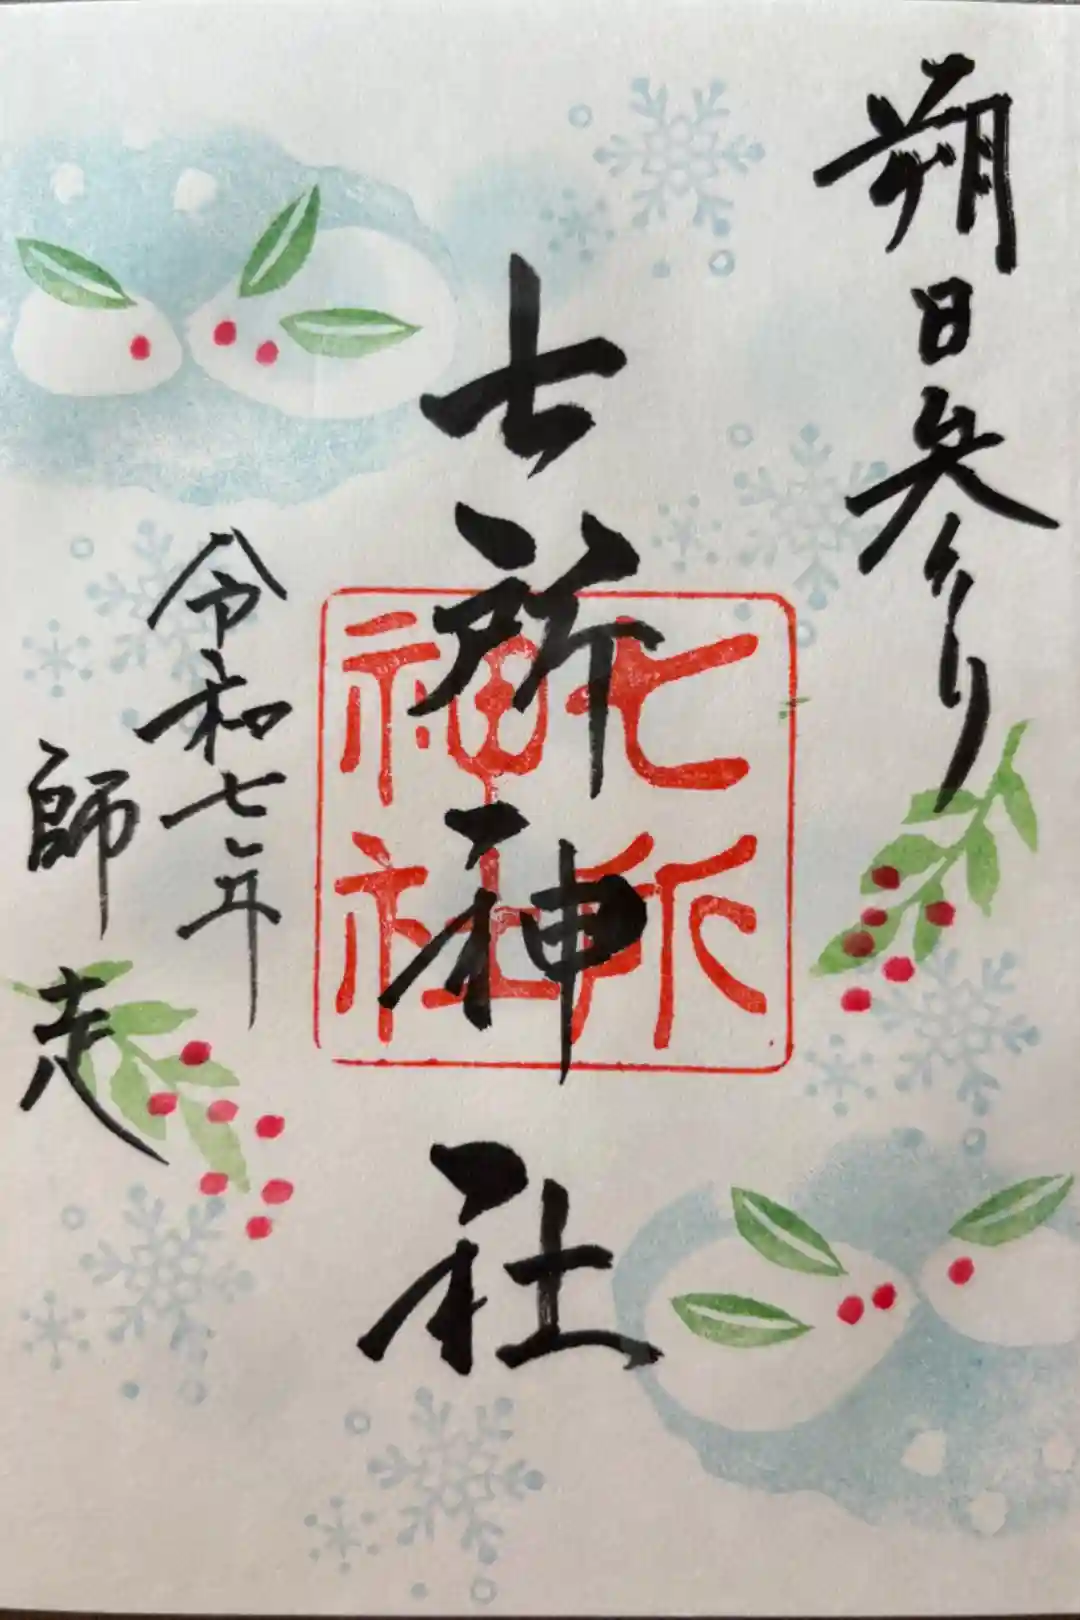 朔日参り
七所神社
七所
神社
令和七年
師走